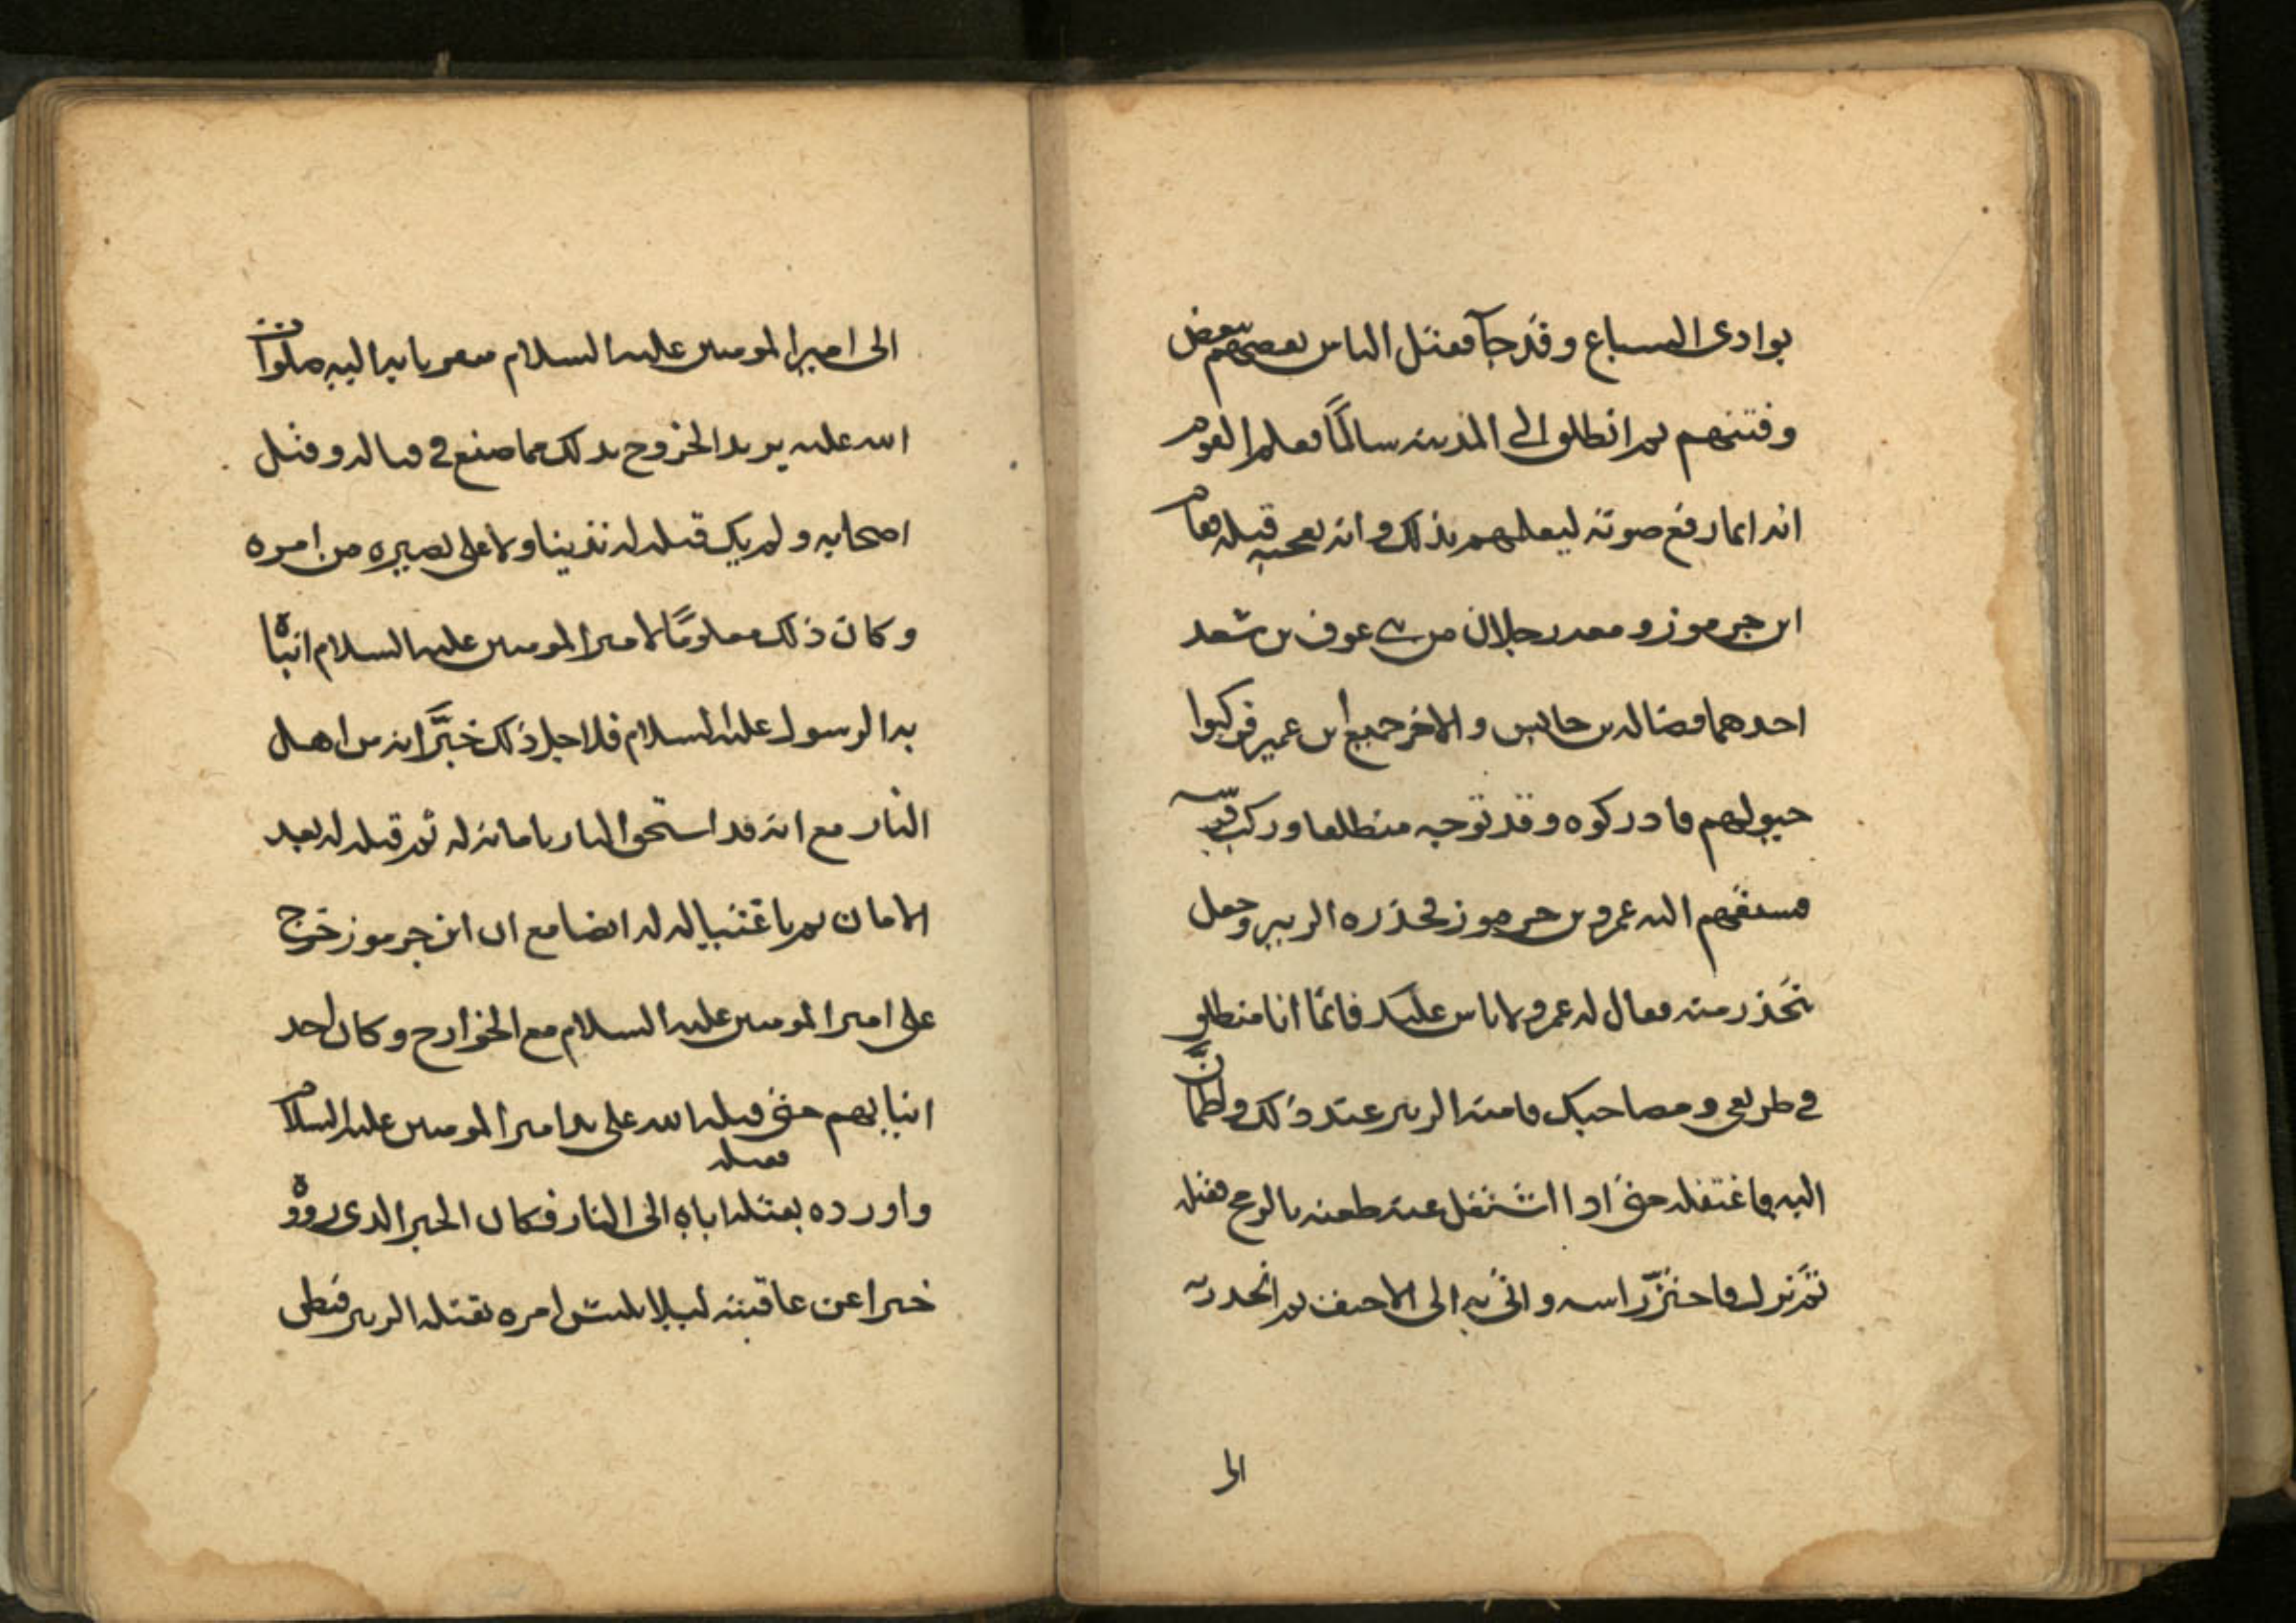 بوادى السباع وقد جآ فقتل الناس بعضهم بعض
وفتنهم ثم انطلق الى المدينه سالمًا فعلم القوم
انه انما رفع صوته ليعلمهم بذلك وانه يعجبه قتله فقام
ابن جرموز ومعه رجلان من بنى عوف بن سعد
احدهما فضاله بن حابس والاخر جميع ابن عمير فركبوا
خيولهم فادركوه وقد توجه منطلقا وركب
فسبقهم اليه عمرو بن جرموز فحذره الزبير وجعل
يتحذر منه فقال له عمرو لا باس عليك فانما انا منطلق
فى طريقى ومصاحبك فامنه الزبير عند ذلك واطمانَّ
اليه فاغتفله حتى اذا اشتغل عنه طعنه بالرمح فقتله
ثم نزل فاحتزّ راسه واتى به الى الاحنف ثم انحدر به
الى
الى امير المومنين عليه السلام متقربا به اليه صلوات
الله عليه يريد الخروج بذلك مما صنع فى قتاله وقتل
اصحابه ولم يك قتله له تدينا ولا على بصيره من امره
وكان ذلك معلومًا لامير المومنين عليه السلام انباه
به الرسول عليه السلام فلاجل ذلك خبَّر انه من اهل
النار مع انه قد استحق النار بامانه له ثم قتله له بعد
الامان ثم باغتياله له ايضا مع ان ابن جرموز خرج
على امير المومنين عليه السلام مع الخوارج وكان احد
انيابهم حتى قتله الله على يد امير المومنين عليه السلام
فقتله
واورده بقتله اياه الى النار فكان الخبر الذى رووه
خبرا عن عاقبته ليلا يلتبس امره بقتله الزبير فيظن